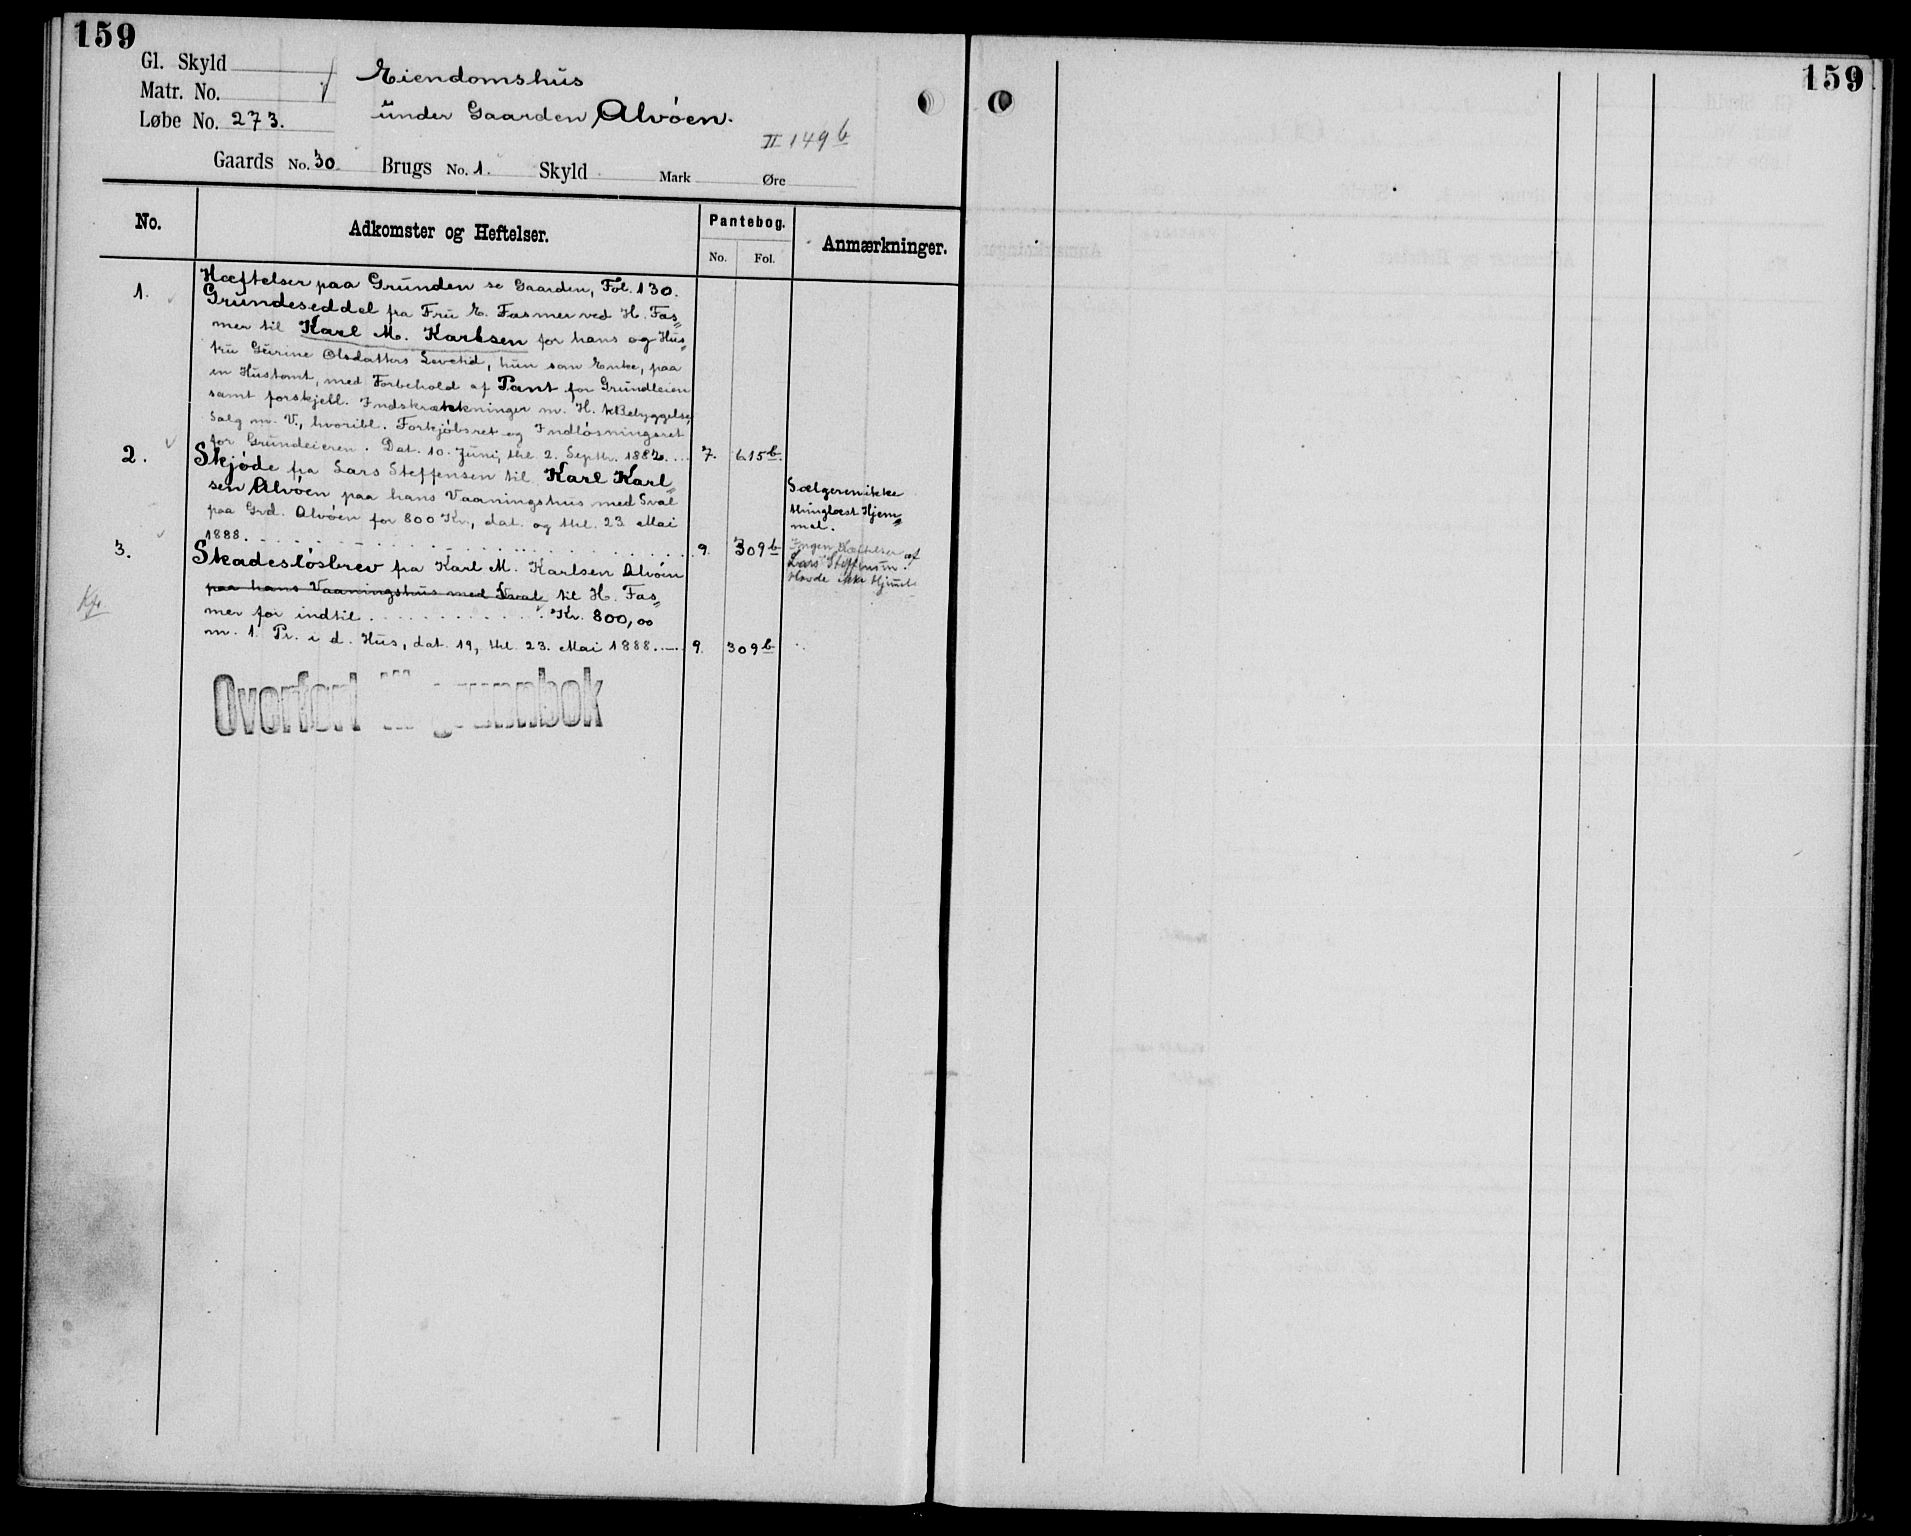 159
159
Gl. Skyld
Matr. No.
Løbe No. 273.
Eiendomshus
under Gaarden Alvøen.
II 149 b
Gaards No. 30 Brugs No. 1. Skyld Mark Øre
No. Adkomster og Heftelser. Pantebog. Anmærkninger.
No. Fol.
Hæftelser paa Grunden se Gaarden, Fol. 130.
1. Grundeseddel fra Fru E. Fasmer ved H. Fas„
mer til Karl M. Karlsen for hans og Hus„
tru Geirine Olsdatters Levetid, hun som Enke, paa
en Hustomt, med Forbehold af Pant for Grundleien
samt forskjell. Indskrænkninger m. H. t. Bebyggelse,
Salg m. V., hvoribl. Forkjøbsret og Indløsningsret
for Grundeieren. Dat. 10. Juni, thl. 2. Septbr. 1882. 7. 615 b.
2. Skjøde fra Lars Steffensen til Karl Karl„
sen Alvøen paa hans Vaaningshus med Sval
paa Grd. Alvøen for 800 Kr., dat. og thl. 23. Mai
1888. 9. 309 b
Sælgeren ikke
thinglæst Hjem„
mel.
Ingen Hæftelser af
Lars Steffensen.
Havde ikke Hjemel
3. Skadesløsbrev fra Karl M. Karlsen Alvøen
paa hans Vaaningshus med Sval til H. Fas„
mer for indtil Kr. 800,00
m. 1. Pr. i d. Hus, dat. 19, thl. 23. Mai 1888. 9. 309 b
Overført til grunnbok